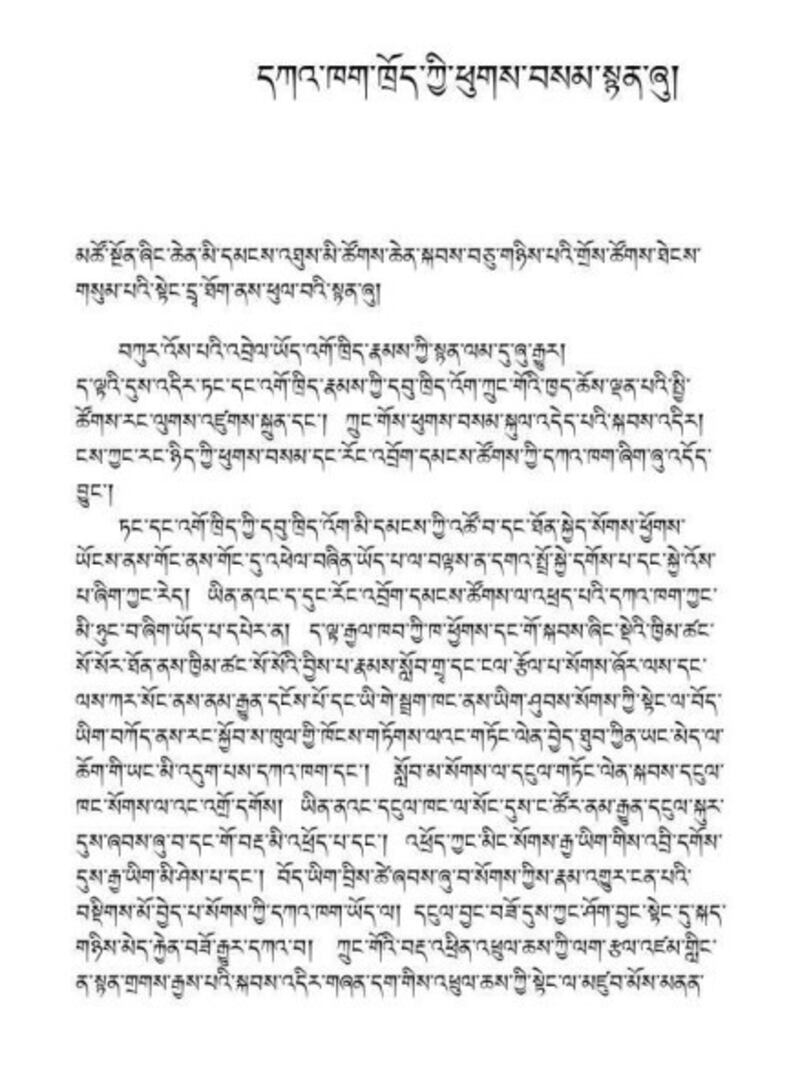 དཀའ་ཁག་ཁྲོད་ཀྱི་ཕུགས་བསམ་སྙན་ཞུ།
མཚོ་སྔོན་ཞིང་ཆེན་མི་དམངས་འཐུས་མི་ཚོགས་ཆེན་སྐབས་བཅུ་གཉིས་པའི་གྲོས་ཚོགས་ཐེངས་
གསུམ་པའི་སྟེང་དྲྭ་ཐོག་ནས་ཕུལ་བའི་སྙན་ཞུ།
བཀུར་འོས་པའི་འབྲེལ་ཡོད་འགོ་ཁྲིད་རྣམས་ཀྱི་སྙན་ལམ་དུ་ཞུ་རྒྱུར།
ད་ལྟའི་དུས་འདིར་ཏང་དང་འགོ་ཁྲིད་རྣམས་ཀྱི་དབུ་ཁྲིད་འོག་ཀྲུང་གོའི་ཁྱད་ཆོས་ལྡན་པའི་སྤྱི་
ཚོགས་རང་ལུགས་འཛུགས་སྐྲུན་དང་།  ཀྲུང་གོས་ཕུགས་བསམ་སྐུལ་འདེད་པའི་སྐབས་འདིར།
ངས་ཀྱང་རང་ཉིད་ཀྱི་ཕུགས་བསམ་དང་རོང་འབྲོག་དམངས་ཚོགས་ཀྱི་དཀའ་ཁག་ཞིག་ཞུ་འདོད་
བྱུང་།
ཏང་དང་འགོ་ཁྲིད་ཀྱི་དབུ་ཁྲིད་འོག་མི་དམངས་ཀྱི་འཚོ་བ་དང་ཐོན་སྐྱེད་སོགས་ཕྱོགས་
ཡོངས་ནས་གོང་ནས་གོང་དུ་འཕེལ་བཞིན་ཡོད་པ་ལ་བལྟས་ན་དགའ་སྤྲོ་སྐྱེ་དགོས་པ་དང་སྐྱེ་འོས་
པ་ཞིག་ཀྱང་རེད།  ཡིན་ནའང་ད་དུང་རོང་འབྲོག་དམངས་ཚོགས་ལ་འཕྲད་པའི་དཀའ་ཁག་ཀྱང་
མི་ཉུང་བ་ཞིག་ཡོད་པ་དཔེར་ན།  ད་ལྟ་རྒྱལ་ཁབ་ཀྱི་ཁ་ཕྱོགས་དང་གོ་སྐབས་ཞིང་སྡེའི་ཁྱིམ་ཚང་
སོ་སོར་ཐོན་ནས་ཁྱིམ་ཚང་སོ་སོའི་བྱིས་པ་རྣམས་སློབ་གྲྭ་དང་ངལ་རྩོལ་པ་སོགས་ཞོར་ལས་དང་
ལས་ཀར་སོང་ནས་ནམ་རྒྱུན་དངོས་པོ་དང་ཡི་གེ་སྦྲག་ཁང་ནས་ཡིག་ཤུབས་སོགས་ཀྱི་སྟེང་ལ་བོད་
ཡིག་བཀོད་ནས་རང་སྐྱོབ་ས་ཁུལ་གྱི་ཁོངས་གཏོགས་ལའང་གཏོང་ལེན་བྱེད་ཐུབ་ཀྱིན་ཡང་མེད་ལ་
ཆོག་གི་ཡང་མི་འདུག་པས་དཀའ་ཁག་དང་།  སློབ་མ་སོགས་ལ་དངུལ་གཏོང་ལེན་སྐབས་དངུལ་
ཁང་སོགས་ལ་འང་འགྲོ་དགོས།  ཡིན་ནའང་དངུལ་ཁང་ལ་སོང་དུས་ང་ཚོར་ནམ་རྒྱུན་དངུལ་སྐུར་
དུས་ཞབས་ཞུ་བ་དང་གོ་བརྡ་མི་འཕྲོད་པ་དང་།  འཕྲོད་ཀྱང་མིང་སོགས་རྒྱ་ཡིག་གིས་འབྲི་དགོས་
དུས་རྒྱ་ཡིག་མི་ཤེས་པ་དང་།  བོད་ཡིག་བྲིས་ཚེ་ཞབས་ཞུ་བ་སོགས་ཀྱིས་རྣམ་འགྱུར་ངན་པའི་
བསྡིགས་མོ་བྱེད་པ་སོགས་ཀྱི་དཀའ་ཁག་ཡོད་ལ།  དངུལ་བྱང་བཟོ་དུས་ཀྱང་ཤོག་བྱང་སྟེང་དུ་སྐད་
གཉིས་མེད་རྐྱེན་བཟོ་རྒྱུར་དཀའ་བ།  ཀྲུང་གོའི་བརྡ་འཕྲིན་འཕྲུལ་ཆས་ཀྱི་ལག་རྩལ་འཛམ་གླིང་
ན་སྙན་གྲགས་རྒྱས་པའི་སྐབས་འདིར་གཞན་དག་གིས་འཕྲུལ་ཆས་ཀྱི་སྟེང་ལ་མཛུབ་མོས་མནན་